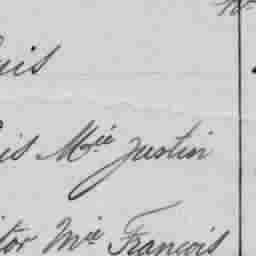 uis
is Mie Justin
tor Mie François